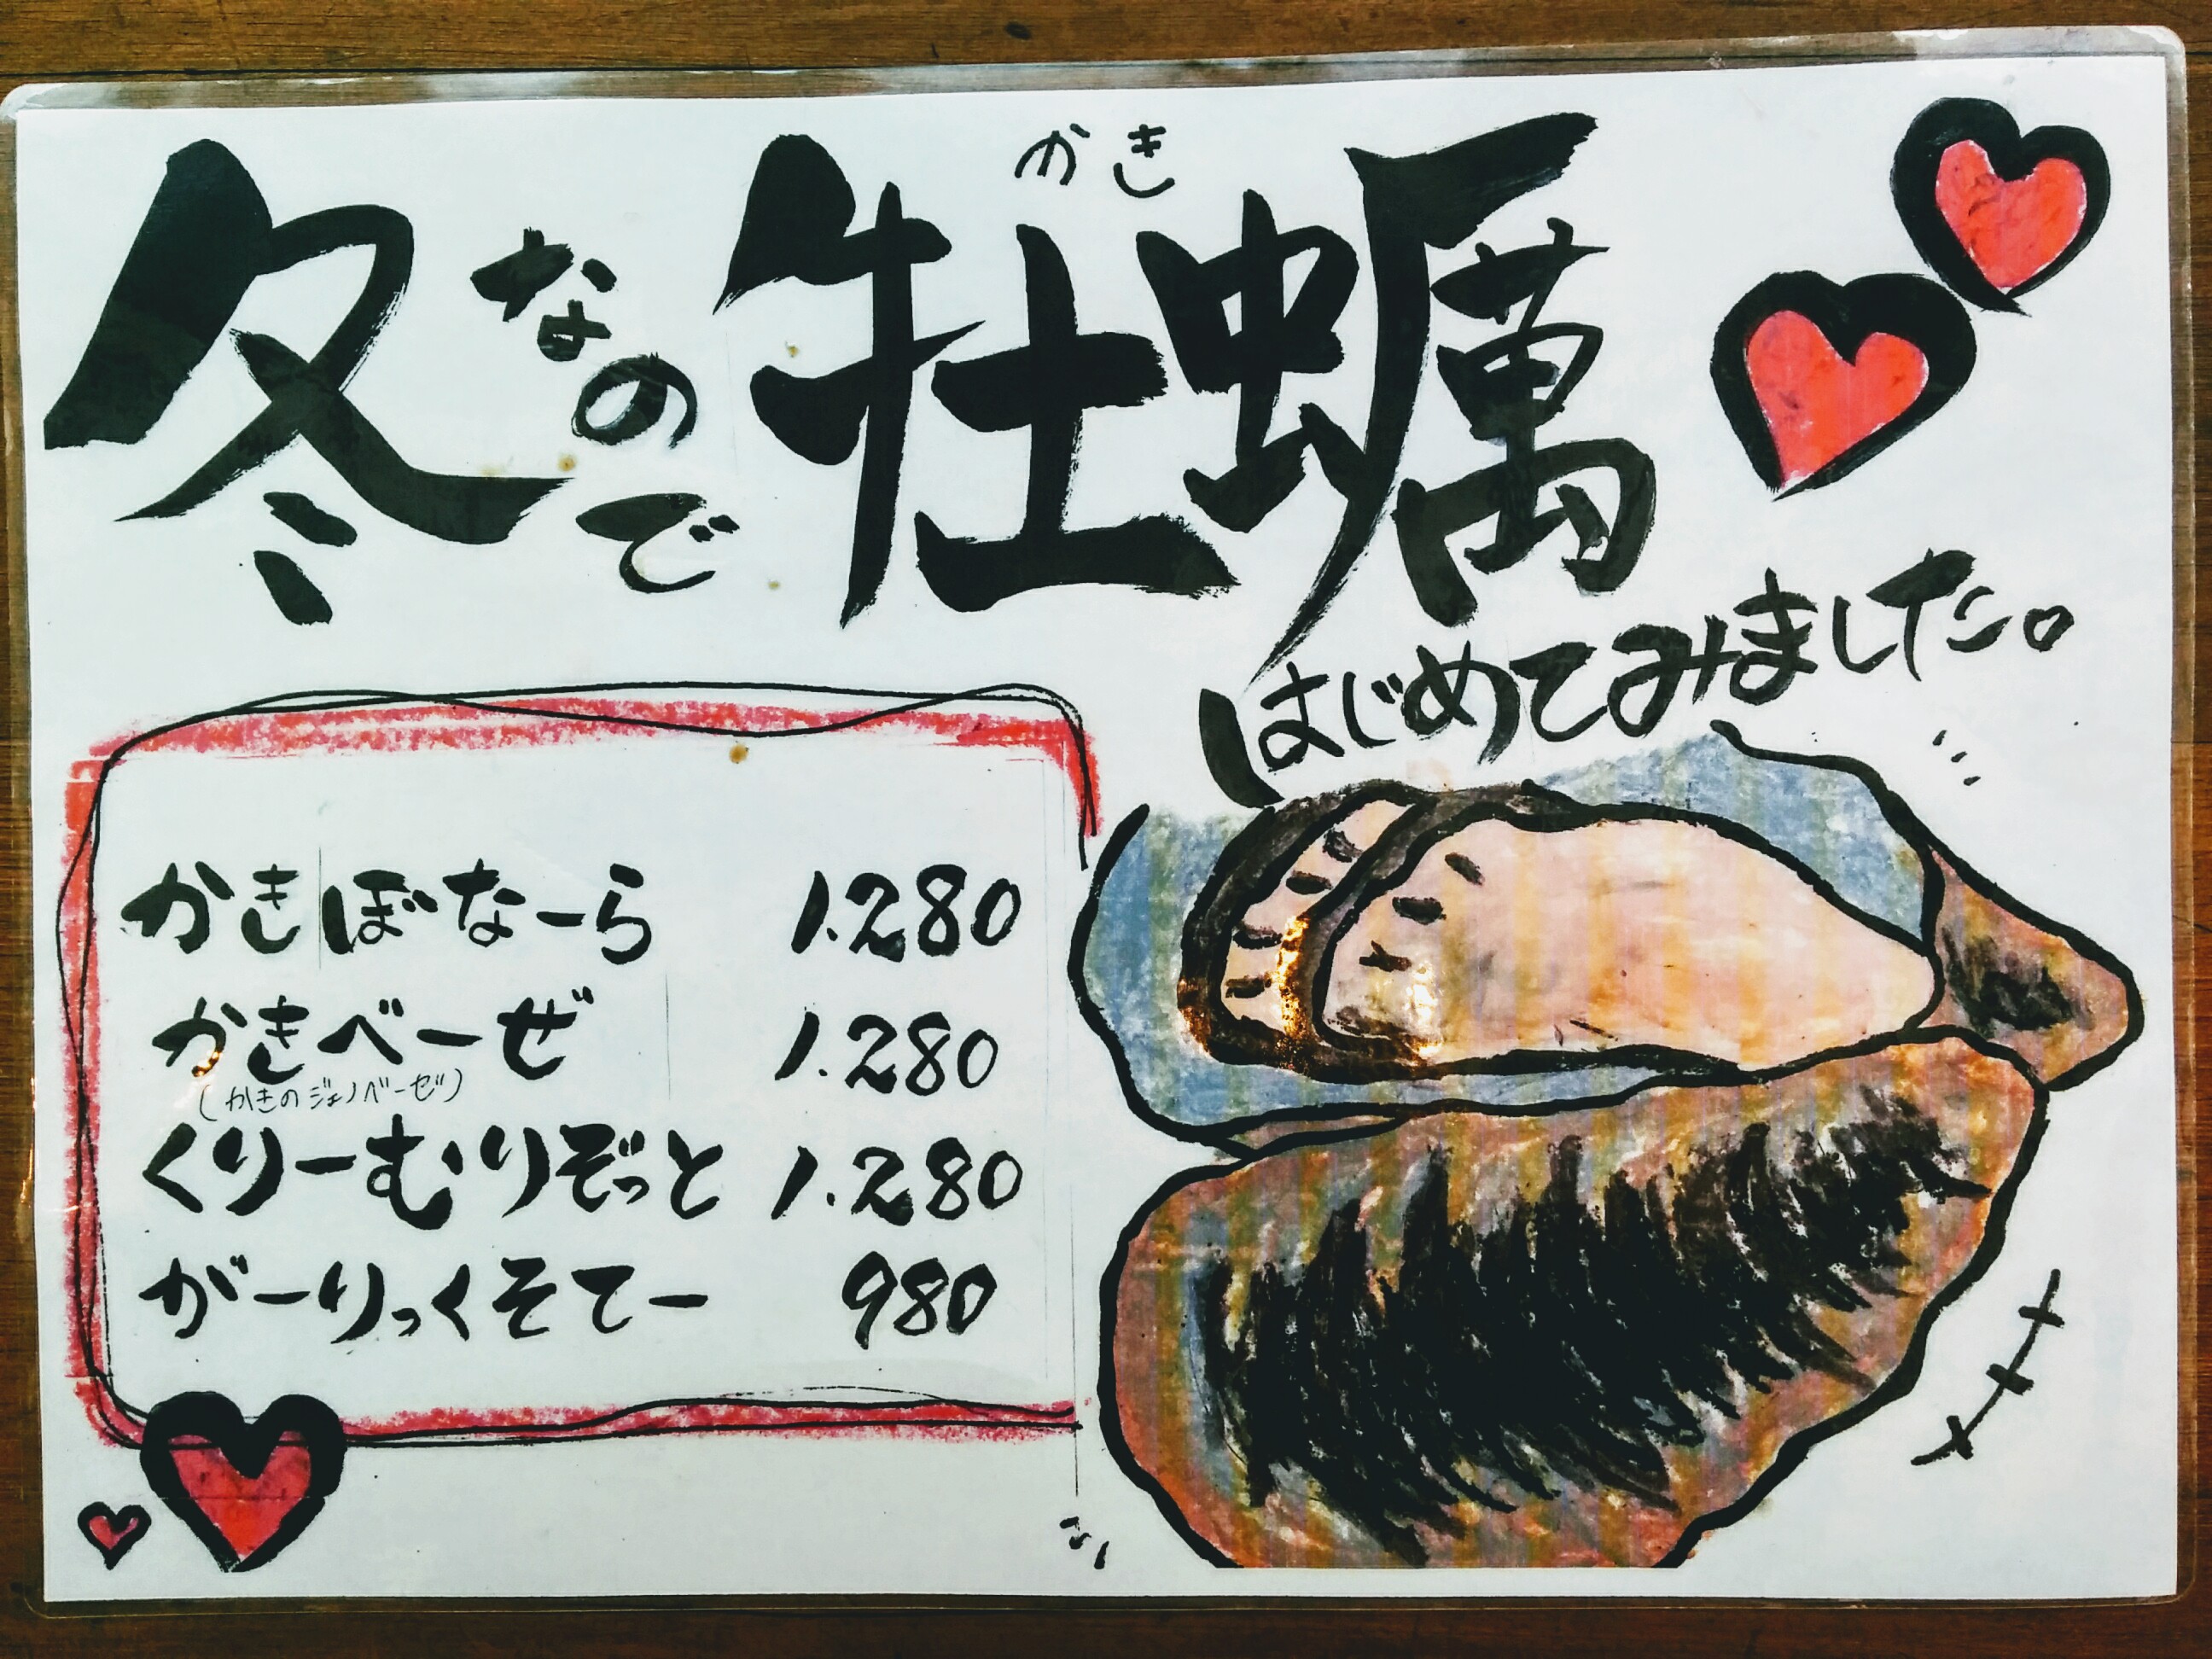 かき
冬なので牡蠣
はじめてみました。
かきぼなーら 1.280
かきべーぜ 1.280
(かきのジェノベーゼ)
くりーむりぞっと 1.280
がーりっくそてー 980